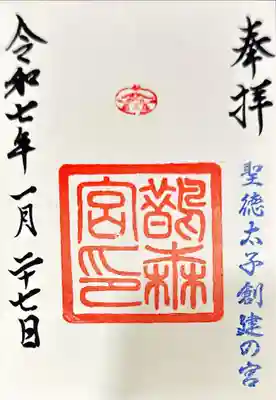 奉拝
聖徳太子創建の宮
鵲森
宮印
令和七年 一月 二十七日